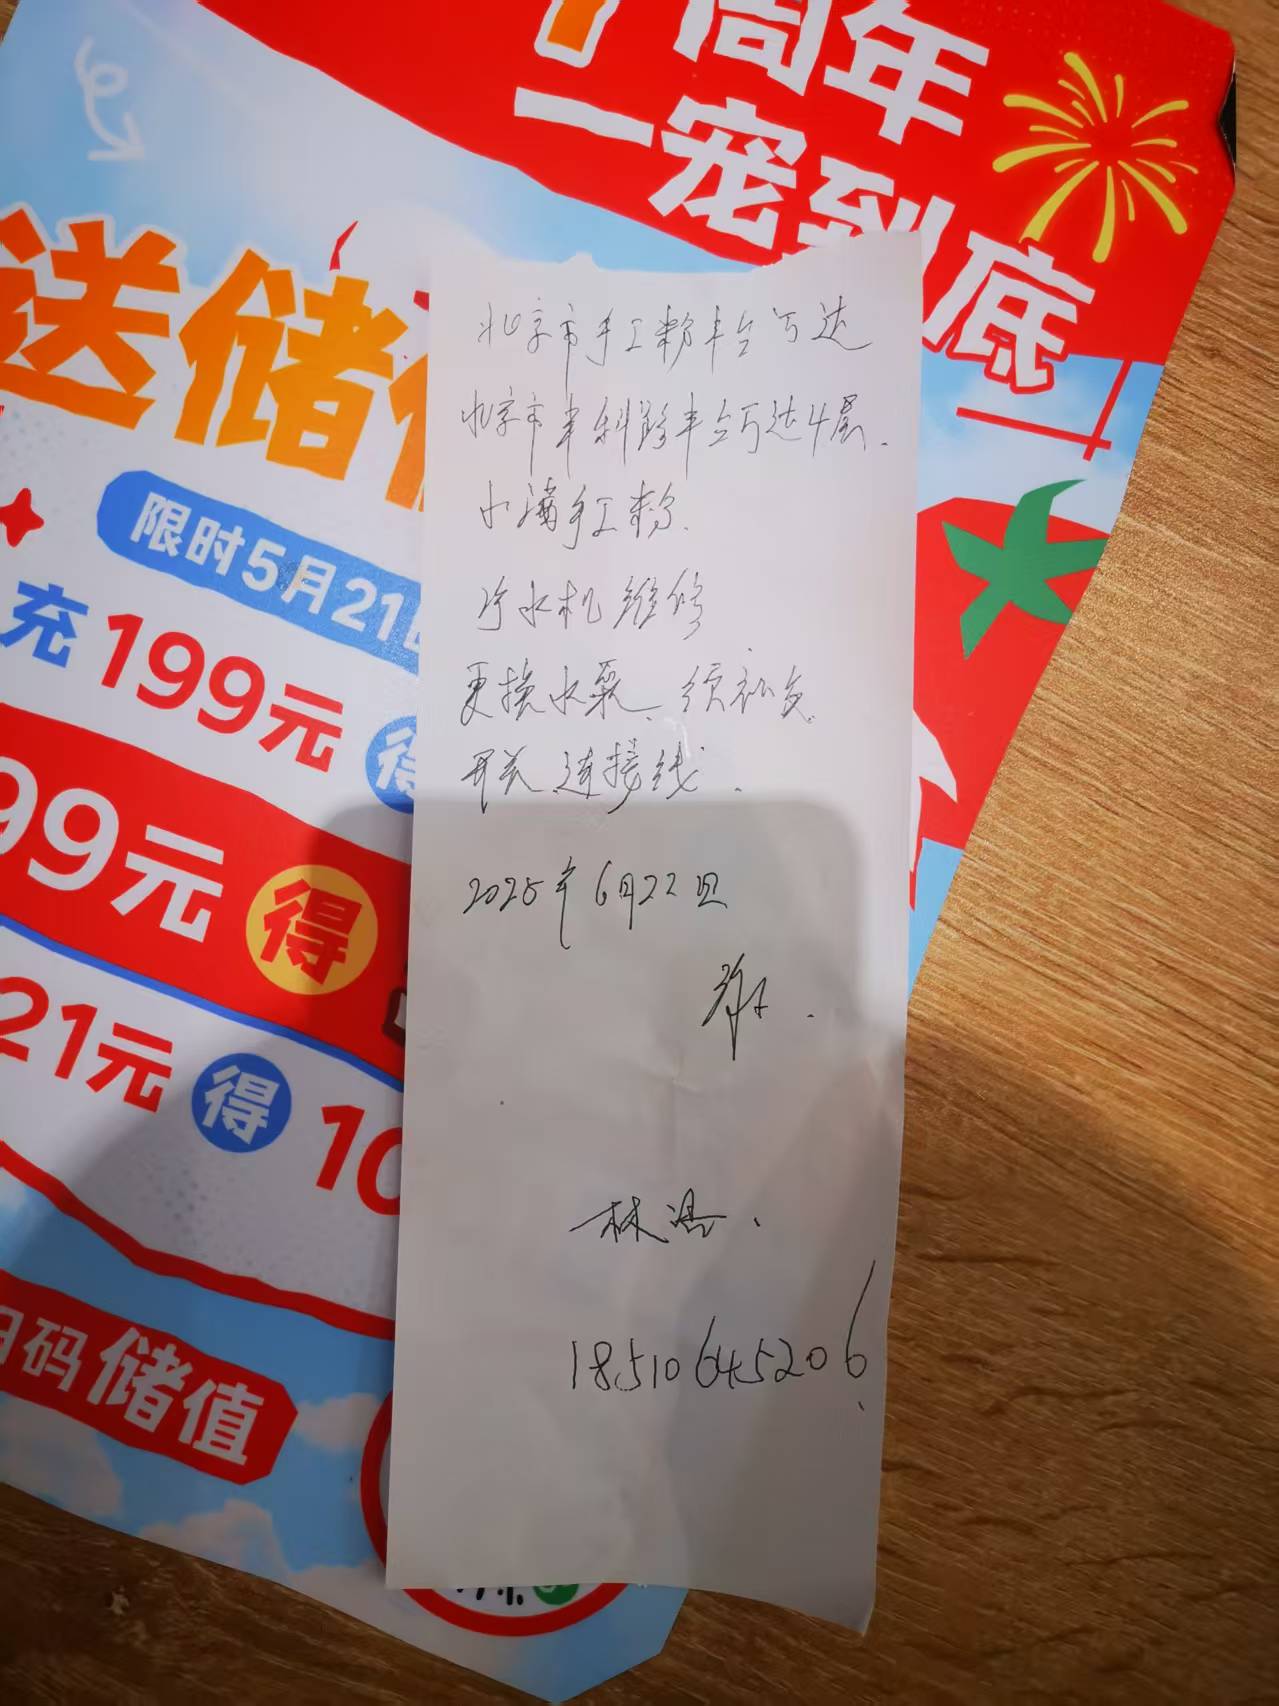 周年
一宠到底
送储
限时5月21
充199元 得
99元 得
21元 得 10
码储值
北京市手工粉丰台万达
北京市丰科路丰台万达4层.
小满手工粉.
冷水机维修
更换水泵、
开关.连接线.
2025年6月22日
林
18510645206